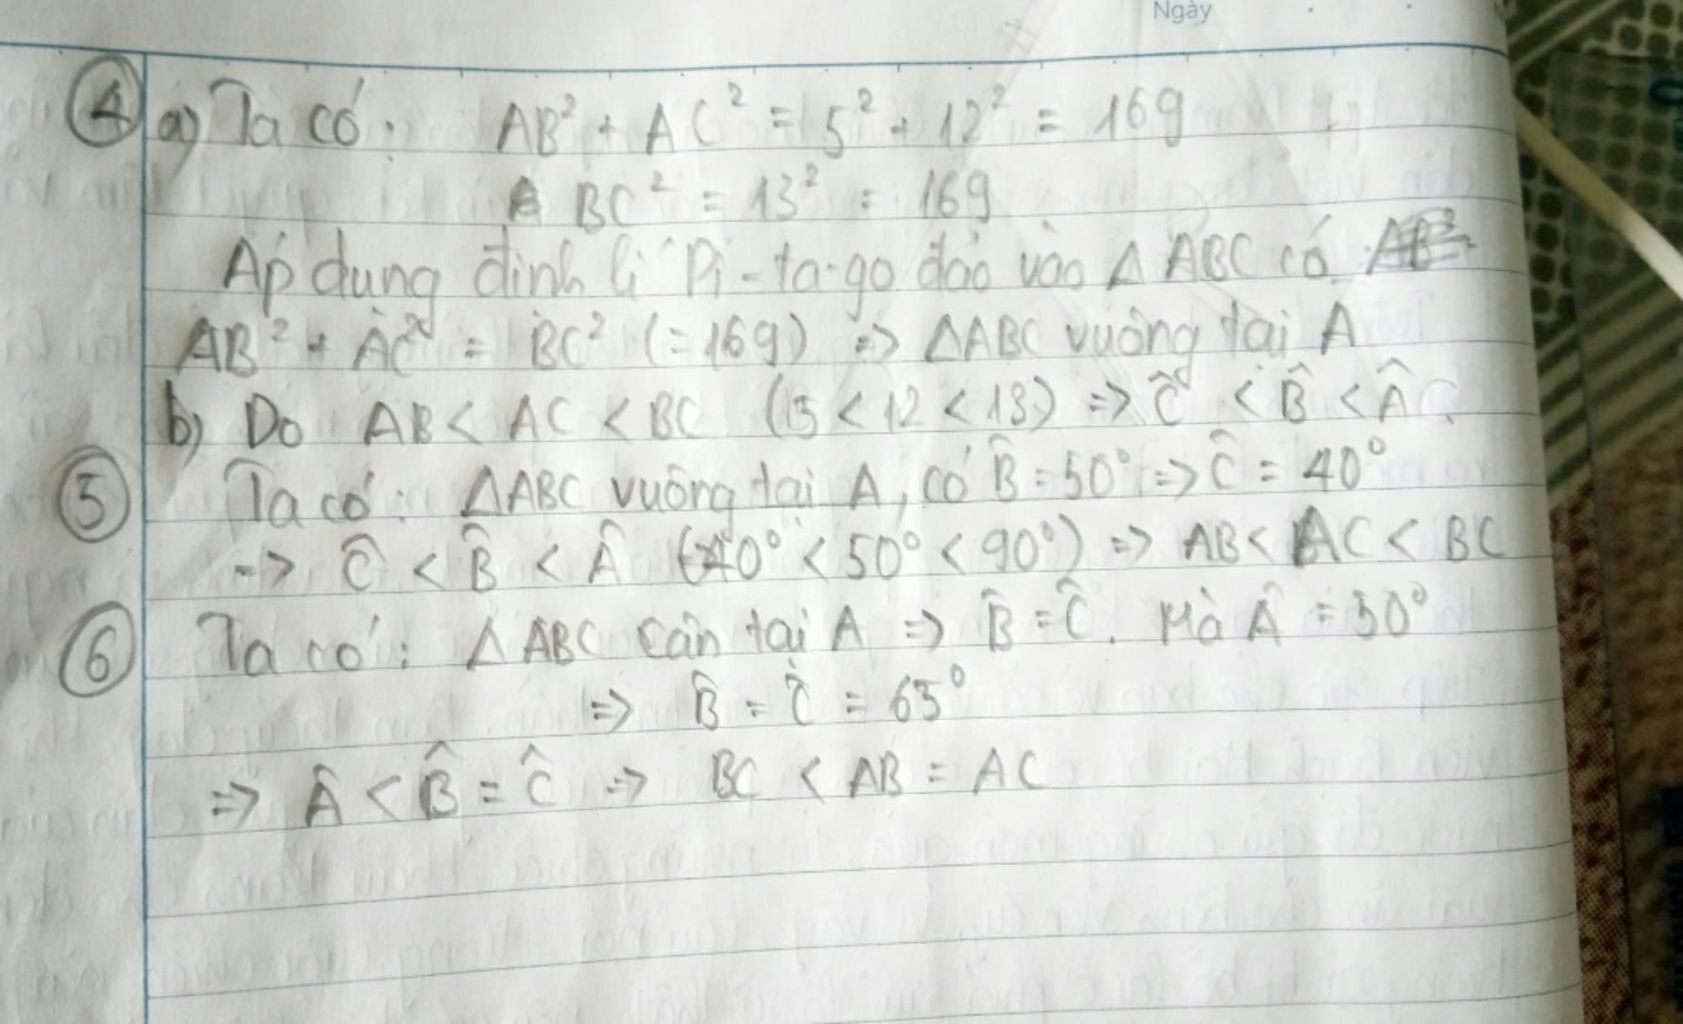 Ngày
④ a) Ta có: AB² + AC² = 5² + 12² = 169
BC² = 13² = 169
Áp dụng định lí Pi-ta-go đảo vào △ ABC có
AB² + AC² = BC² (=169) => △ABC vuông tại A
b) Do AB < AC < BC (5 < 12 < 13) => Ĉ < B̂ < Â
⑤ Ta có: △ABC vuông tại A, có B̂ = 50° => Ĉ = 40°
=> Ĉ < B̂ < Â (40° < 50° < 90°) => AB < AC < BC
⑥ Ta có: △ ABC cân tại A => B̂ = Ĉ. Mà Â = 50°
=> B̂ = Ĉ = 65°
=> Â < B̂ = Ĉ => BC < AB = AC